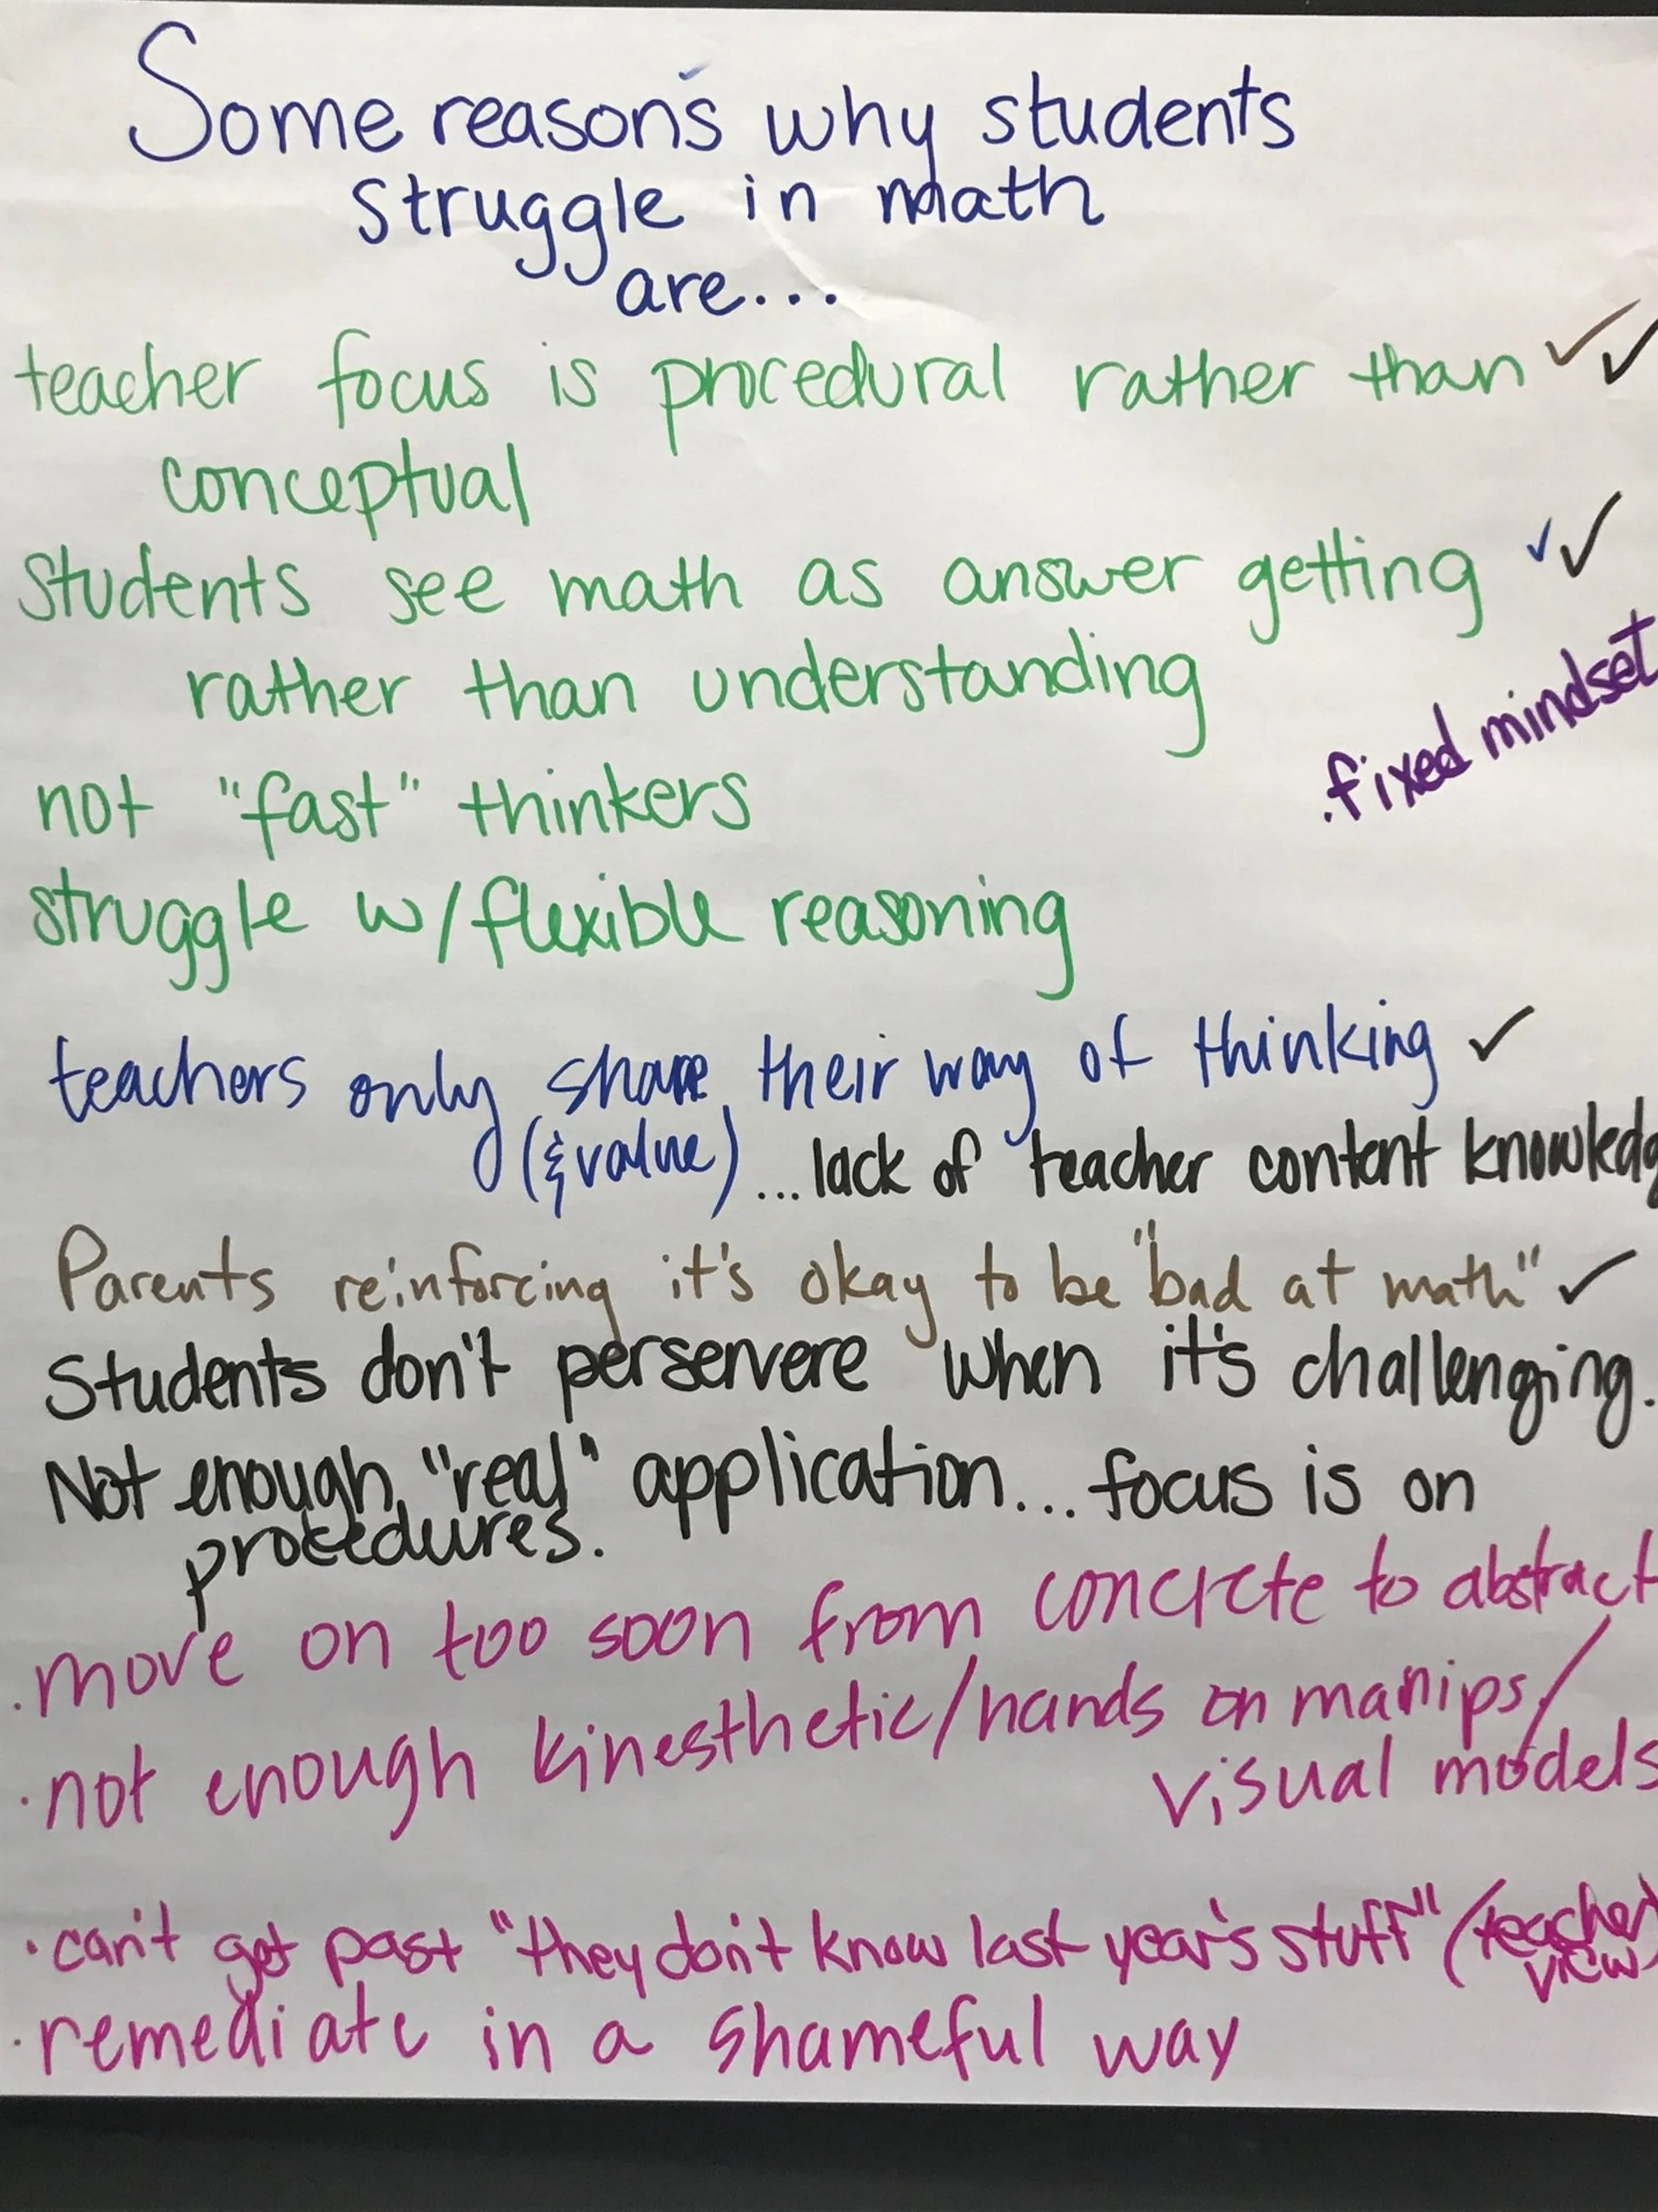 Some reasons why students
struggle in math
are...
teacher focus is procedural rather than ✓✓
conceptual
Students see math as answer getting ✓✓
rather than understanding
.fixed mindset
not "fast" thinkers
struggle w/flexible reasoning
teachers only share their way of thinking ✓
(& value) ...lack of teacher content knowledg
Parents reinforcing it's okay to be "bad at math" ✓
Students don't perservere when it's challenging.
Not enough "real" application... focus is on
procedures.
.move on too soon from concrete to abstract
·not enough kinesthetic/hands on manips/
visual models
·can't get past "they don't know last year's stuff" (teacher
view)
·remediate in a shameful way